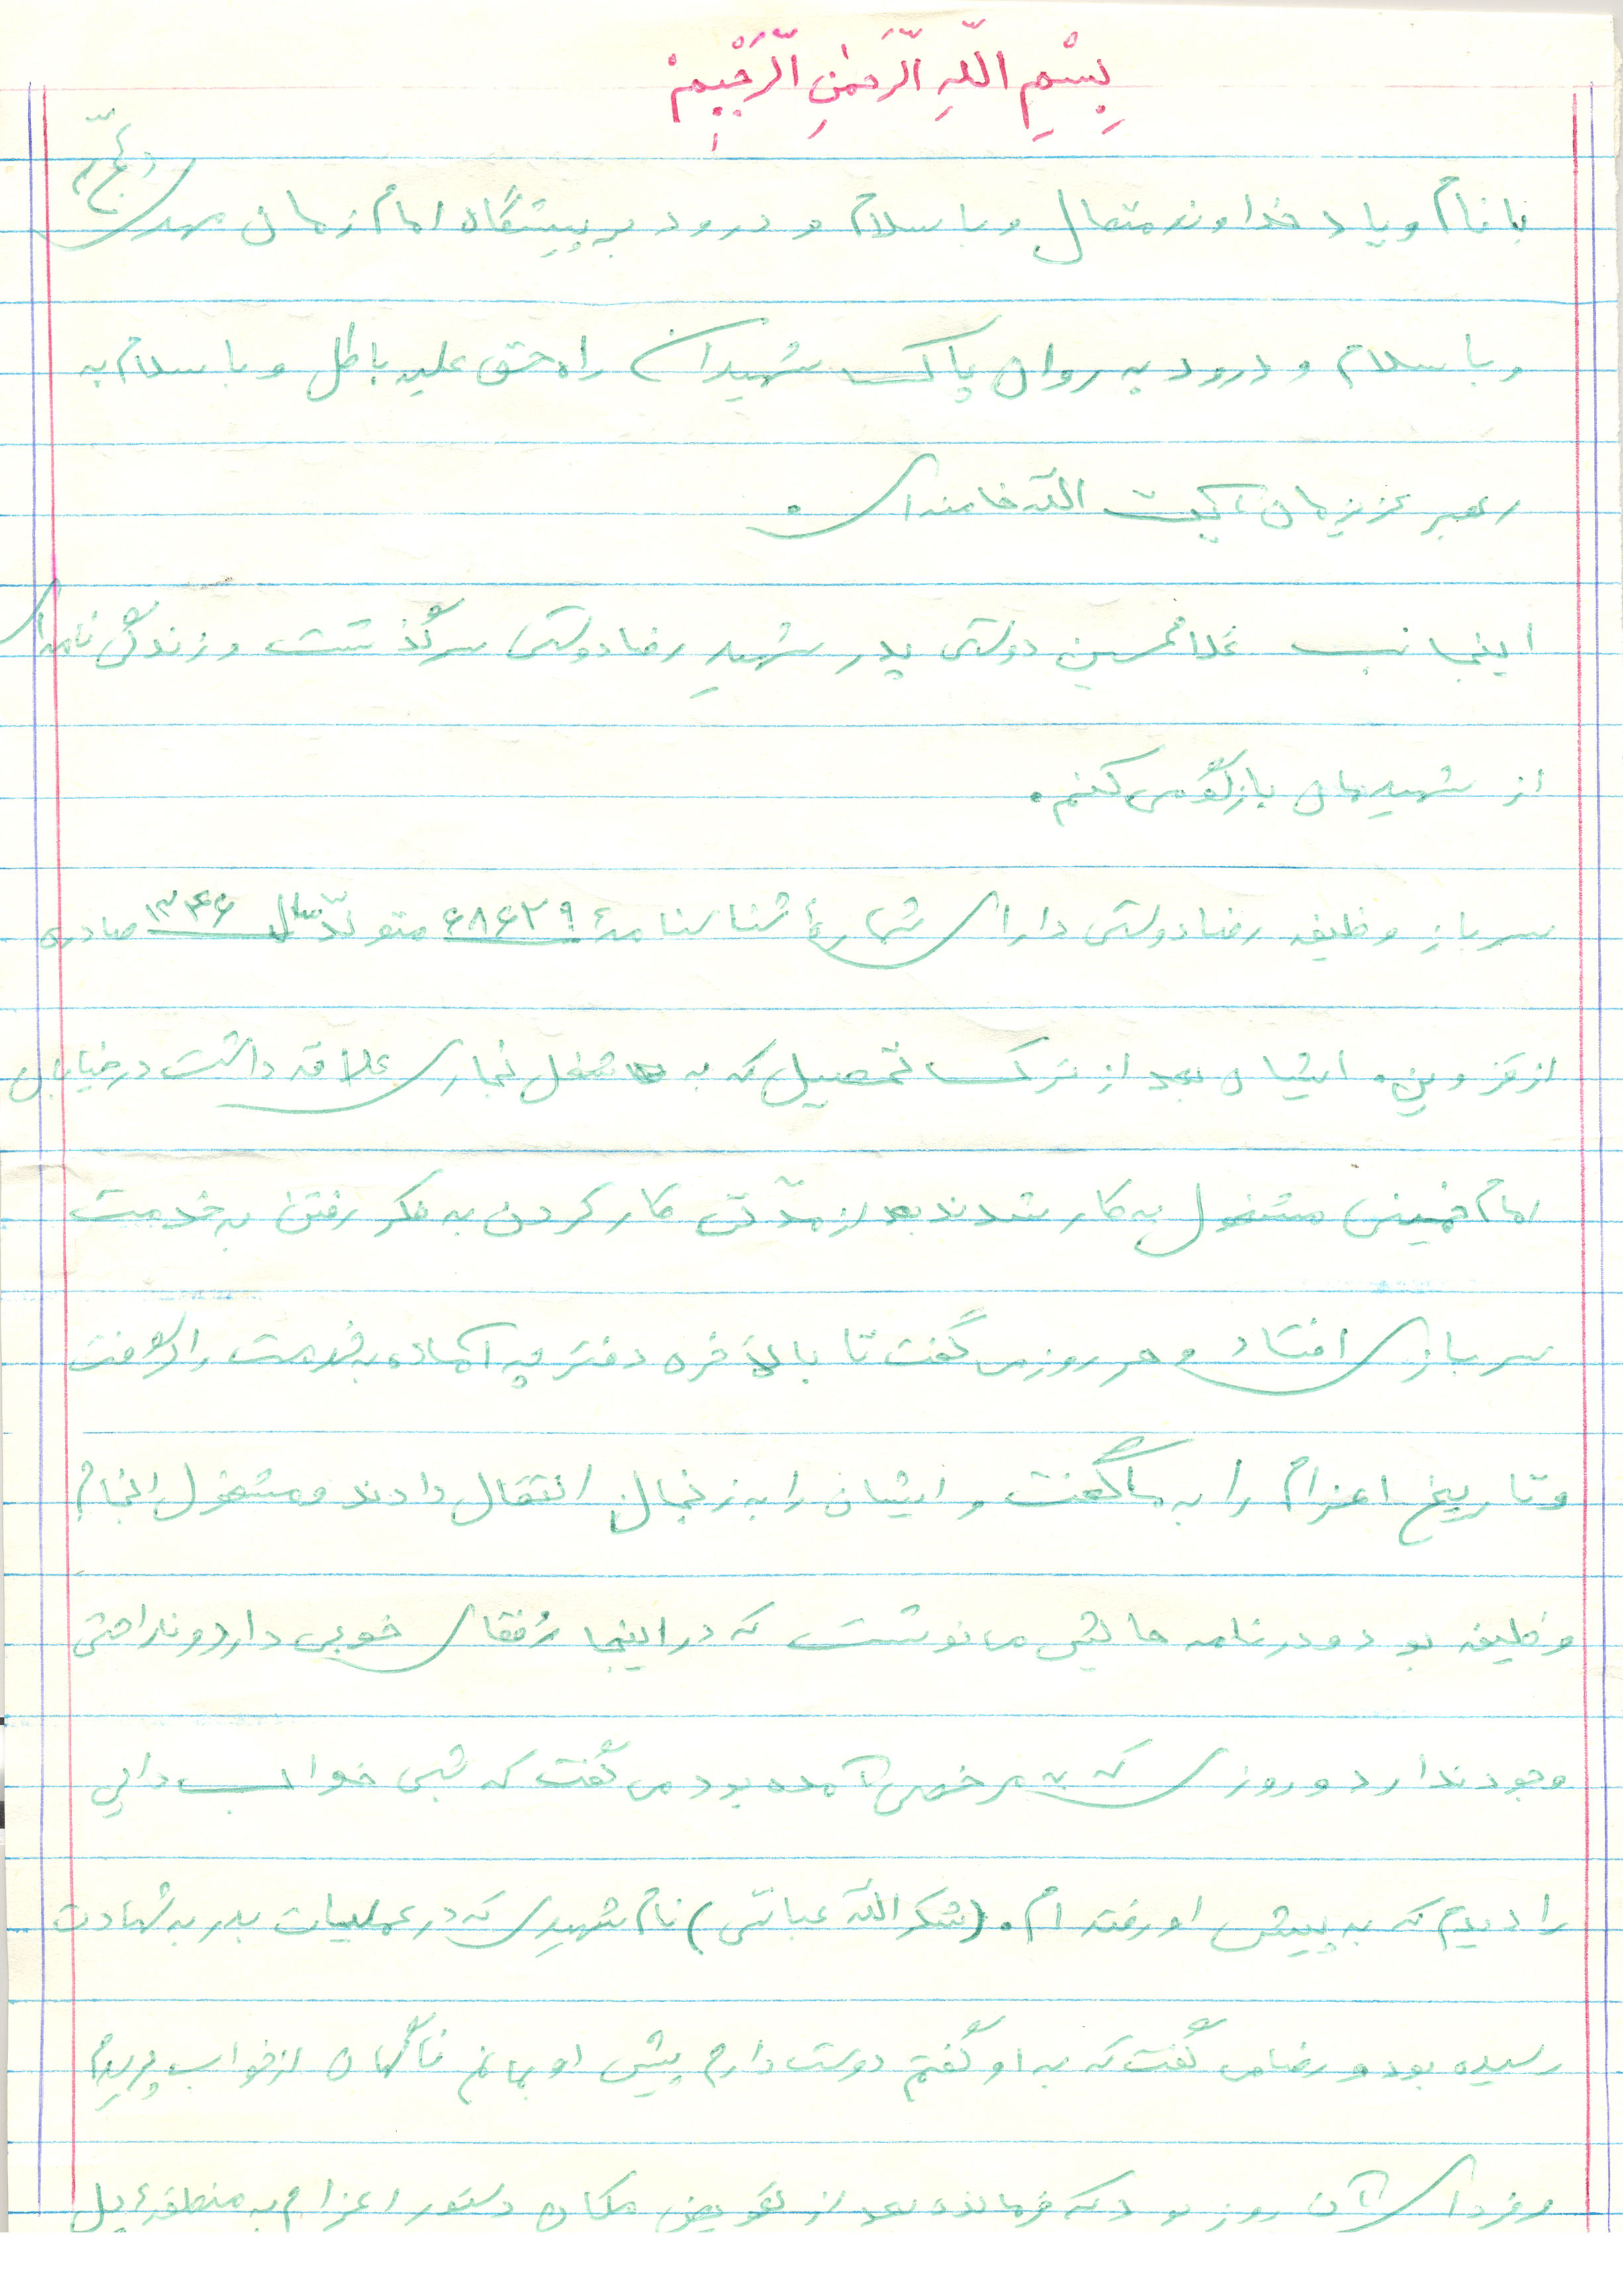 بِسْمِ اللّهِ الرَّحمٰنِ الرَّحیِمْ
با نام و یاد خداوند متعال و با سلام و درود به پیشگاه امام زمان مهدی (عجّ)
و با سلام و درود به روان پاک شهیدان راه حق علیه باطل و با سلام به
رهبر عزیزمان آیت اللّه خامنه‌ای.
اینجانب غلامحسین دولتی پدر شهیدِ رضا دولتی سرگذشت و زندگی نامه‌ای
از شهیدمان بازگو می کنم.
سرباز وظیفه رضا دولتی دارای شمارهٔ شناسنامهٔ ۶۸۶۲۹ متولّد سال ۱۳۴۶ صادره
از قزوین. ایشان بعد از ترک تحصیل که به شغل نجاری علاقه داشت در خیابان
امام خمینی مشغول به کار شدند بعد از مدّتی کار کردن به فکر رفتن به خدمت
سربازی افتاد و هر روز می گفت تا بالاخره دفترچه آماده به خدمت را گرفت
و تاریخ اعزام را به ما گفت و ایشان را به زنجان انتقال دادند و مشغول انجام
وظیفه بود و در نامه هایش می نوشت که در اینجا رُفقای خوبی دارد و ناراحتی
وجود ندارد و روزی که به مرخصی آمده بود می گفت که شبی خواب دایی
را دیدم که به پیش او رفته ام. (شکراللّه عباسی) نام شهیدی که در عملیات بدر به شهادت
رسیده بود و رضا می گفت که به او گفتم دوست دارم پیش او بمانم ناگهان از خواب پریدم
و فردای آن روز بود که فرمانده بعد از تعویض مکان دستور اعزام به منطقهٔ پل